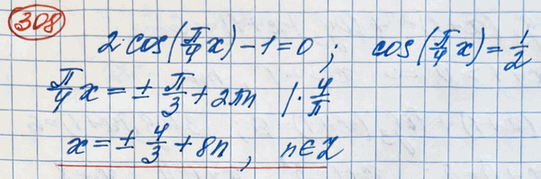 308
2·cos(π/4 x) − 1 = 0 ; cos(π/4 x) = 1/2
π/4 x = ± π/3 + 2πn | · 4/π
x = ± 4/3 + 8n, n ∈ Z